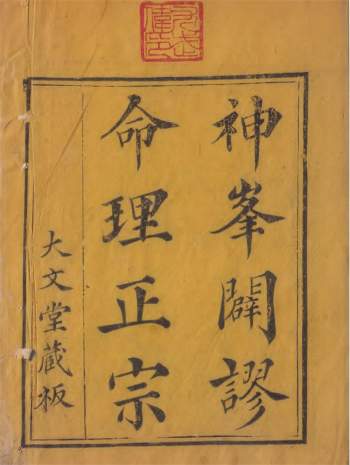 神峯闢謬
命理正宗
大文堂藏板